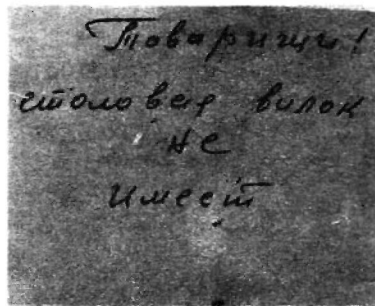 Товарищи!
столовая вилок
не
имеет